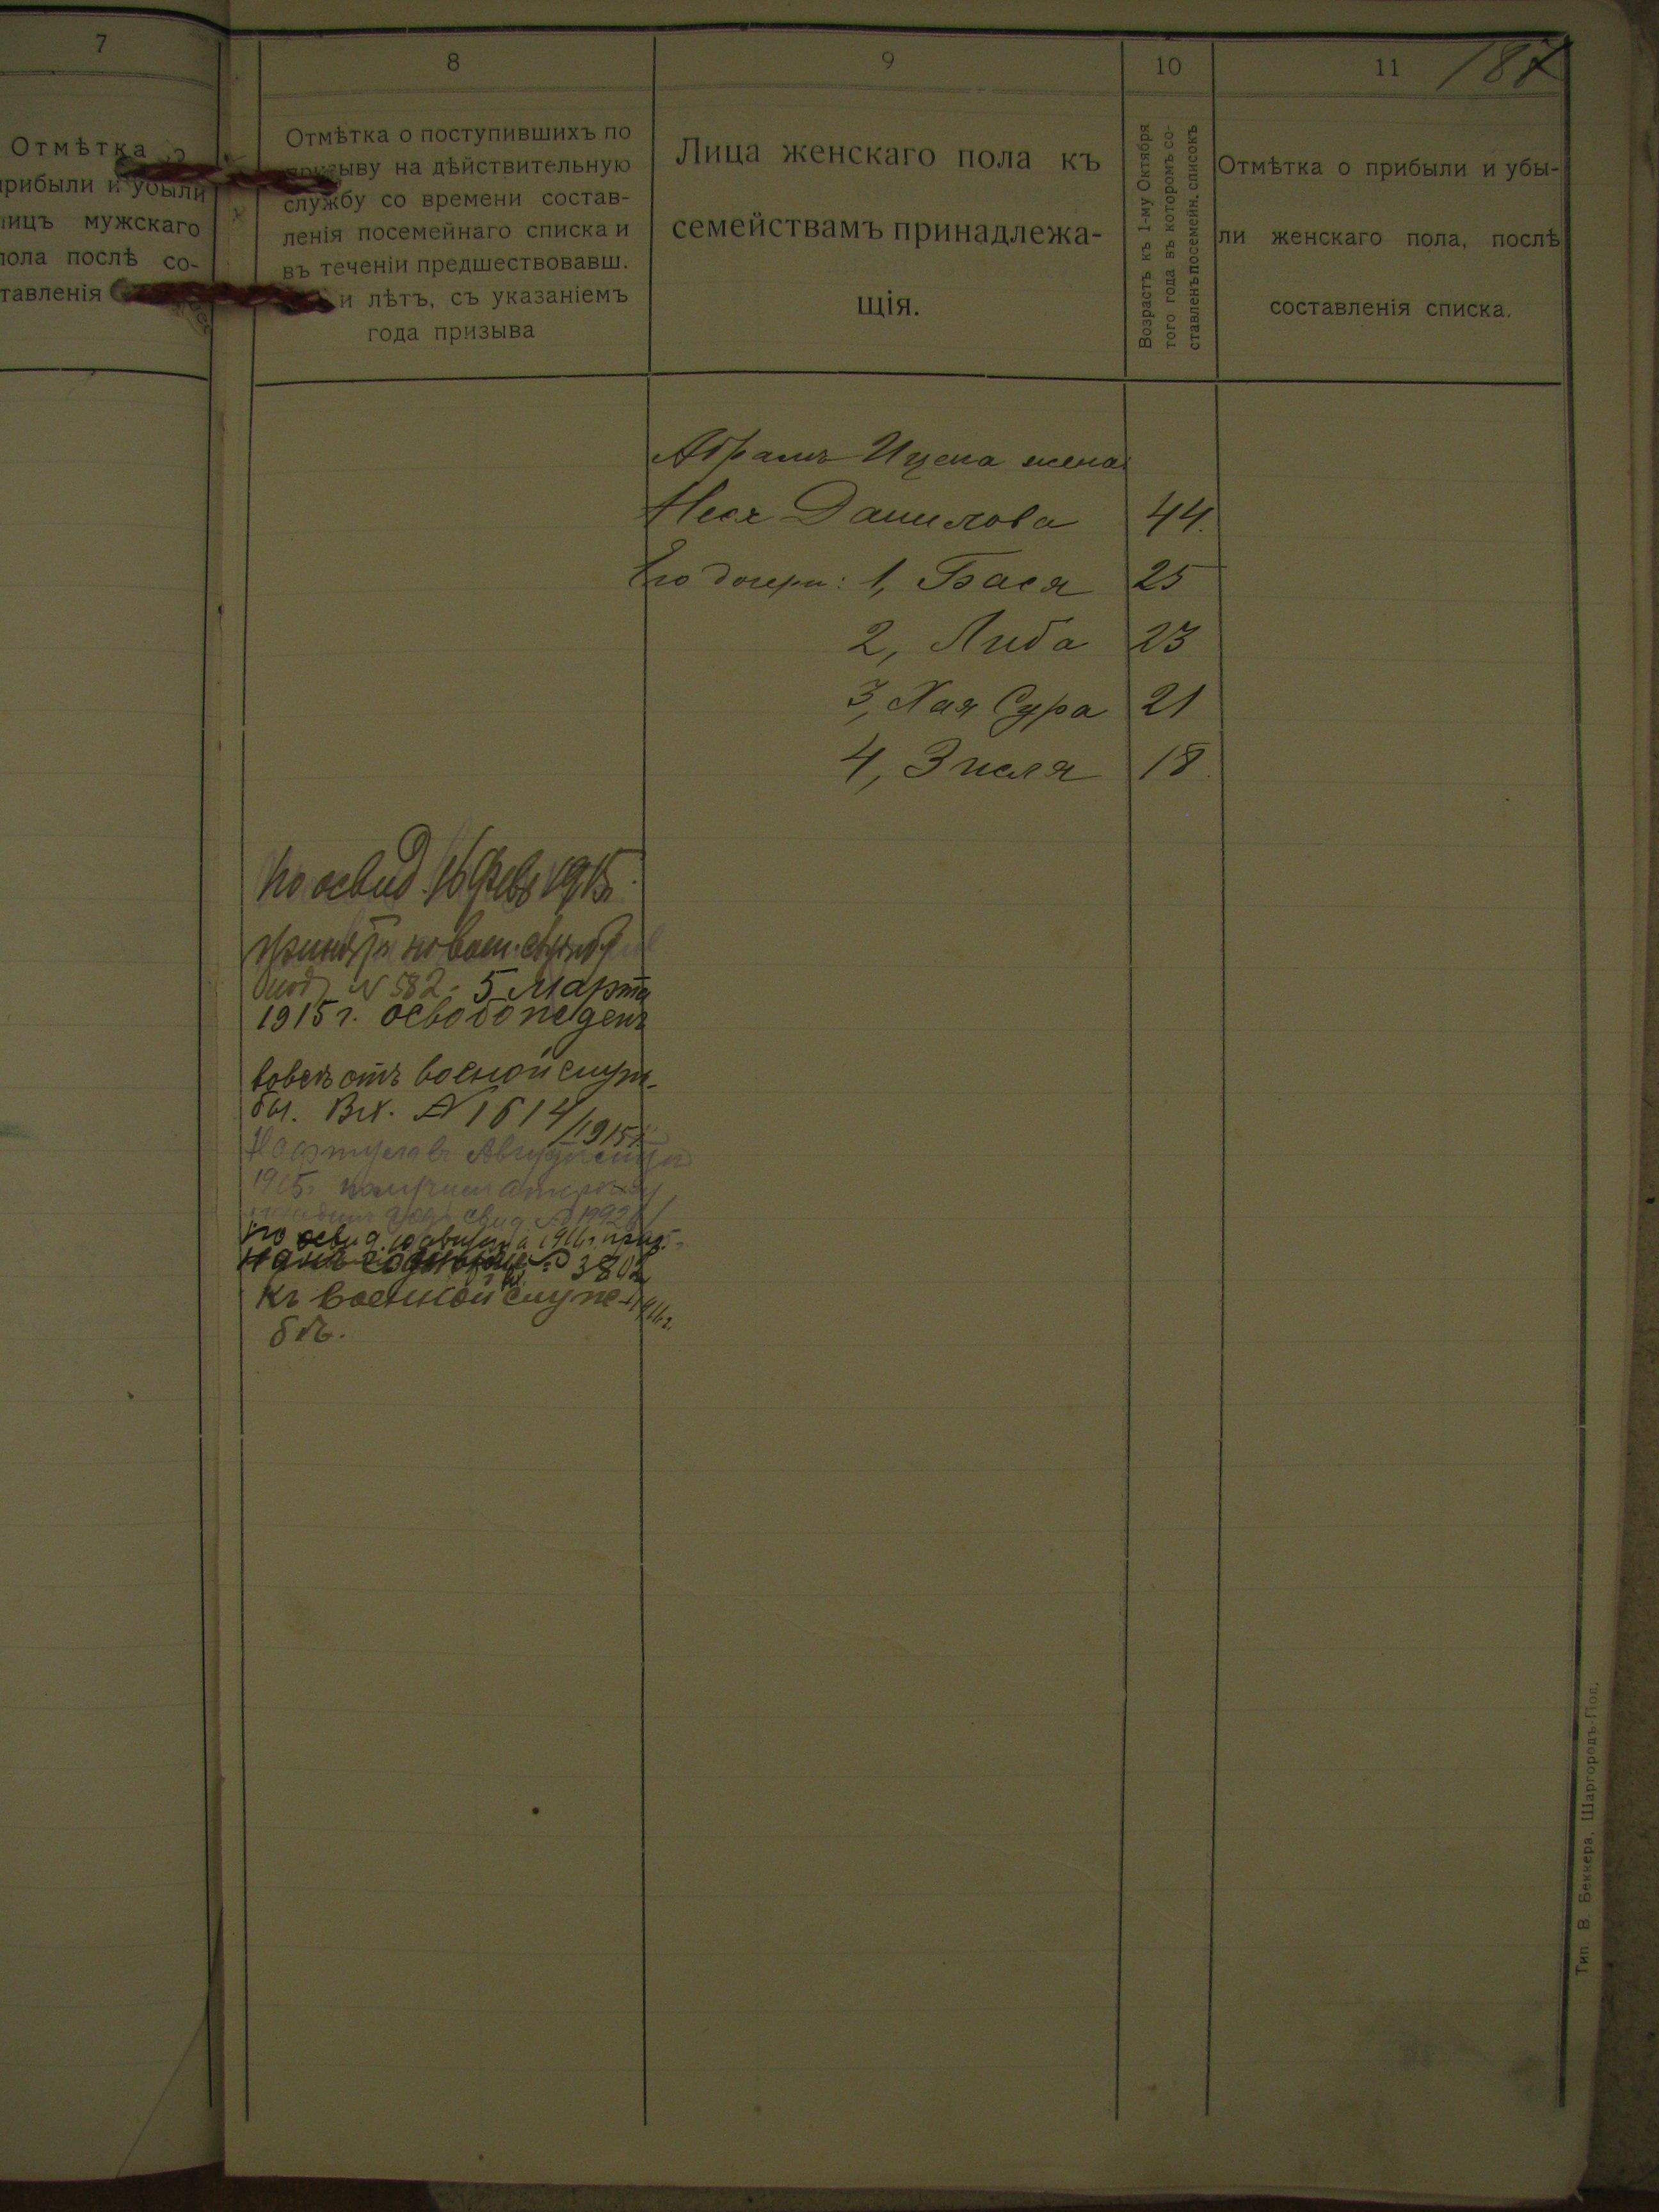 7
Отмѣтка о
прибыли и убыли
лицъ мужскаго
пола послѣ со-
ставленія
8
Отмѣтка о поступившихъ по
призыву на дѣйствительную
службу со времени состав-
ленія посемейнаго списка и
въ теченіи предшествовавш.
и лѣтъ, съ указаніемъ
года призыва
9
Лица женскаго пола къ
семействамъ принадлежа-
щія.
10
Возрастъ къ 1-му Октября
того года въ которомъ со-
ставленъ посемейн. списокъ
11
Отмѣтка о прибыли и убы-
ли женскаго пола, послѣ
составленія списка.
Абрамъ Ицека жена
Неся Данилова 44.
Его дочери: 1, Бася 25
2, Либа 23
3, Хая Сура 21
4, Зисля 18.
По освид. 16 Февр 1915г.
принятъ на воен. службу
№ 582. 5 Марта
1915 г. освобожденъ
вовсе отъ военой служ-
бы. Вх. № 1614/1915г.
1915г.
свид. № 1992
По освид. 10 августа 1916г. приз-
нанъ № 3802
къ военной служ- 1916г.
бѣ.
Тип. В. Беккера, Шаргородъ-Под.